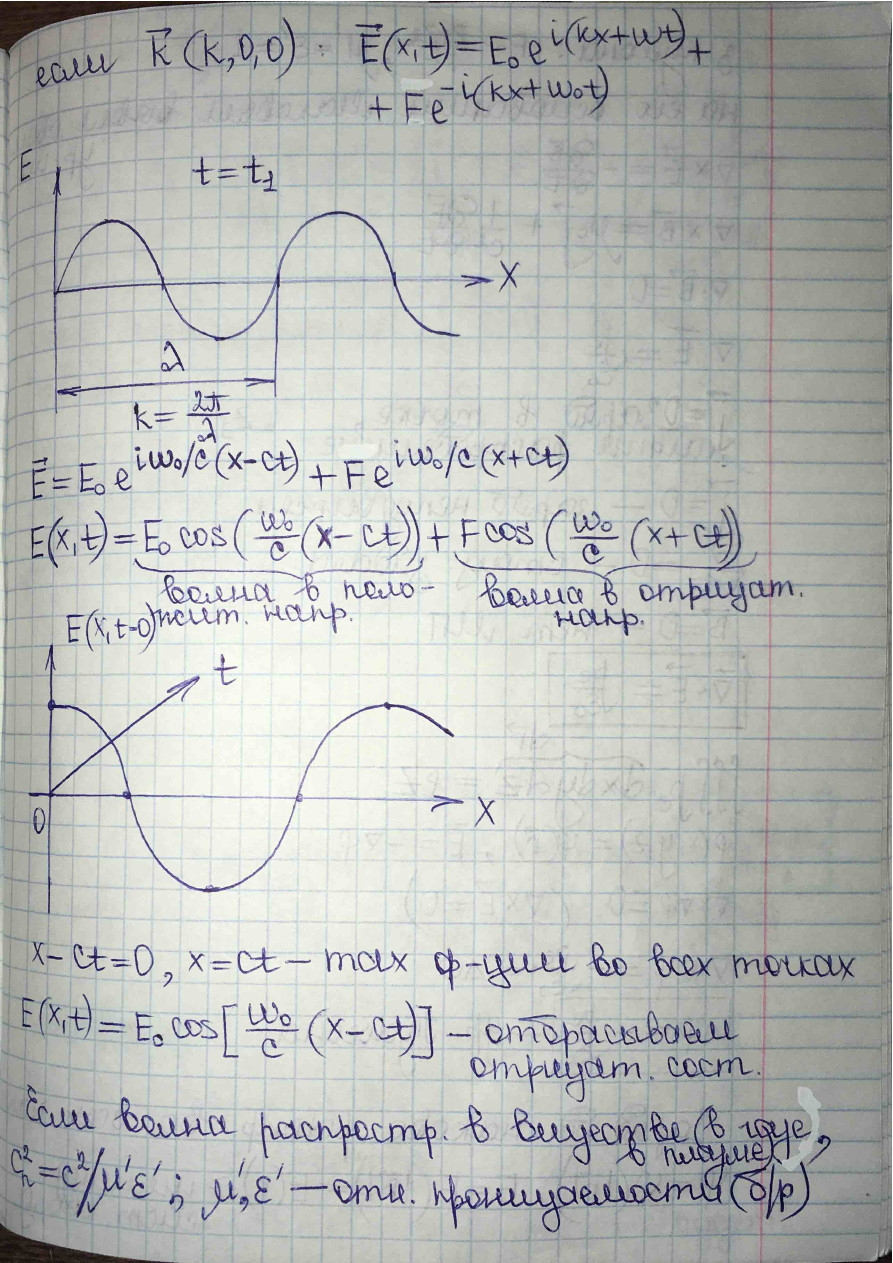 если k⃗ (k,0,0) : E⃗(x,t) = E₀ e^{i(kx+ωt)} +
+ Fe^{-i(kx+ω₀t)}
E
t = t₁
X
λ
k = 2π/λ
E⃗ = E₀ e^{iω₀/c (x-ct)} + Fe^{iω₀/c (x+ct)}
E(x,t) = E₀ cos(ω₀/c (x-ct)) + Fcos(ω₀/c (x+ct))
волна в поло- волна в отрицат.
жит. напр. напр.
E(x,t=0)
t
0
X
x-ct=0, x=ct – max ф-ции во всех точках
E(x,t) = E₀ cos[ω₀/c (x-ct)] – отбрасываем
отрицат. сост.
Если волна распростр. в веществе (в газе,
в плазме)
cₙ² = c²/μ'ε' ; μ',ε' – отн. проницаемости (б/р)